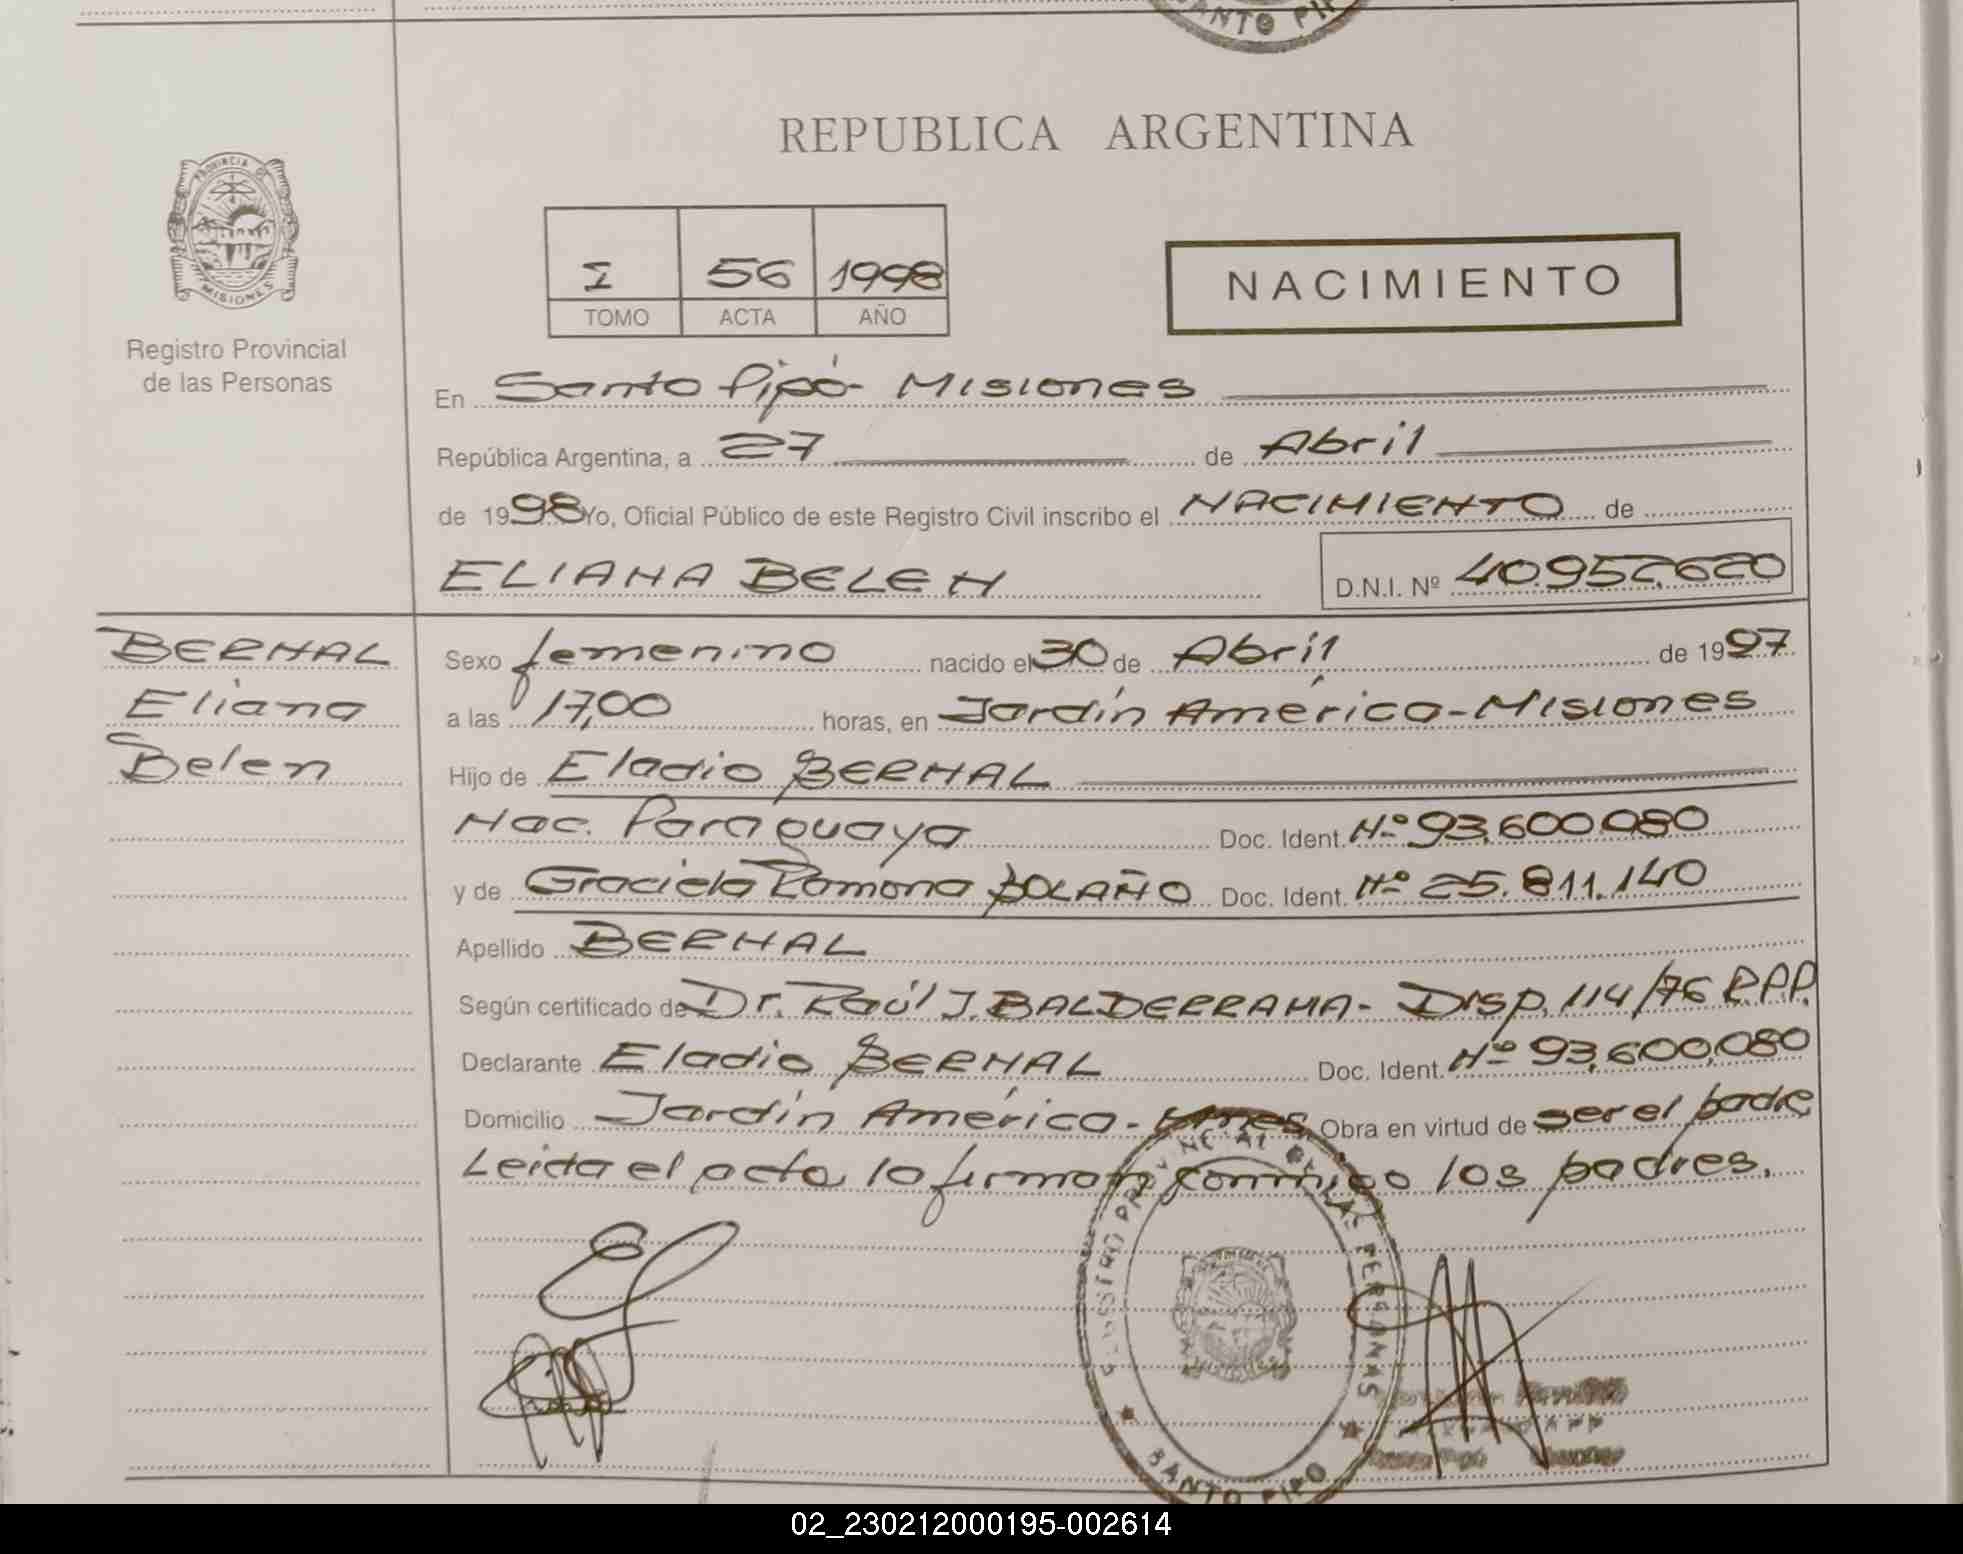 SANTO PIP
REPUBLICA ARGENTINA
PROVINCIA DE
MISIONES
Registro Provincial
de las Personas
I 56 1998
TOMO ACTA AÑO
NACIMIENTO
En Santo Pipó - Misiones
República Argentina, a 27 de Abril
de 1998 Yo, Oficial Público de este Registro Civil inscribo el NACIMIENTO de
ELIANA BELEN D.N.I. Nº 40952620
BERNAL
Eliana
Belen
Sexo femenino nacido el 30 de Abril de 1997
a las 17,00 horas, en Jardín América - Misiones
Hijo de Eladio BERNAL
Nac. Paraguaya Doc. Ident. Nº 93,600.080
y de Graciela Ramona BOLAÑO Doc. Ident. Nº 25.811.140
Apellido BERNAL
Según certificado de Dr. Raúl J. BALDERRAMA - Disp. 114/76 R.P.P.
Declarante Eladio BERNAL Doc. Ident. Nº 93,600,080
Domicilio Jardín América - Mnes Obra en virtud de ser el padre
Leida el acta la firman conmigo los padres.
REGISTRO PROVINCIAL DE LAS PERSONAS
SANTO PIPO
02_230212000195-002614